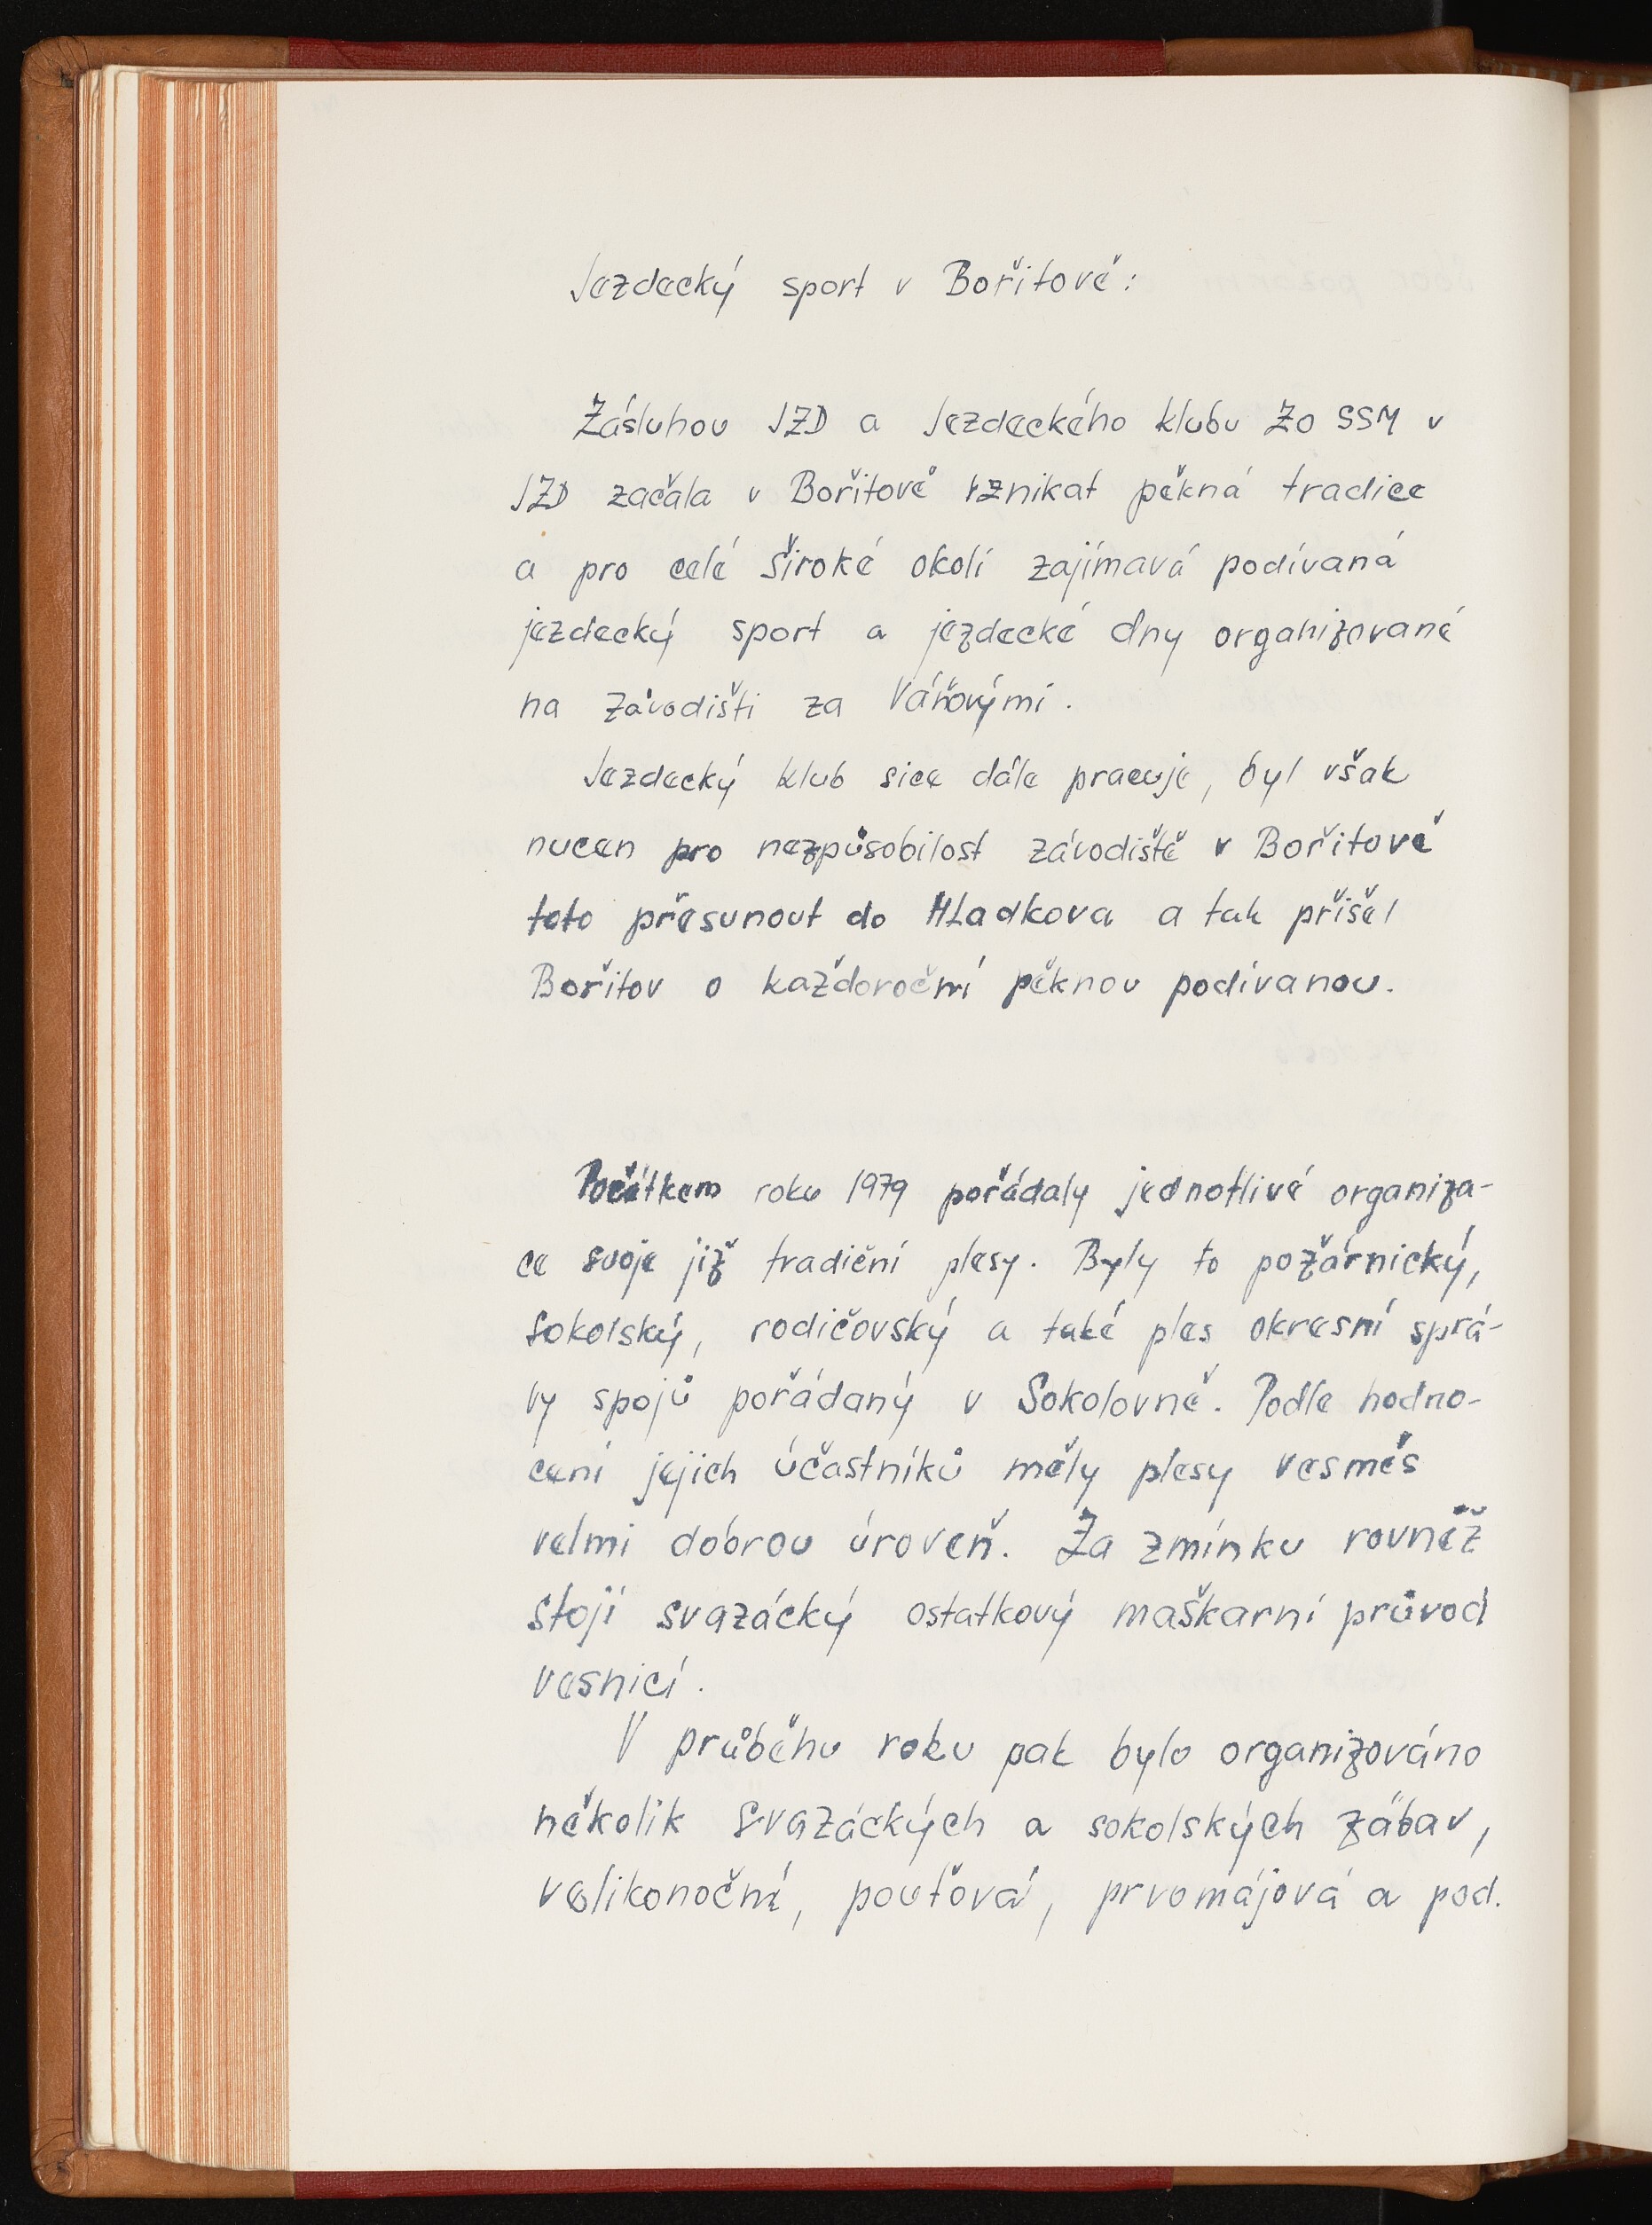 Jezdecký sport v Bořitově:
Zásluhou JZD a Jezdeckého klubu ZO SSM v
JZD začala v Bořitově vznikat pěkná tradice
a pro celé široké okolí zajímavá podívaná
jezdecký sport a jezdecké dny organizované
na závodišti za Váňovými.
Jezdecký klub sice dále pracuje, byl však
nucen pro nezpůsobilost závodiště v Bořitově
toto přesunout do Hladkova a tak přišel
Bořitov o každoroční pěknou podívanou.
Počátkem roku 1979 pořádaly jednotlivé organiza-
ce svoje již tradiční plesy. Byly to požárnický,
Sokolský, rodičovský a také ples okresní sprá-
vy spojů pořádaný v Sokolovně. Podle hodno-
cení jejich účastníků měly plesy vesměs
velmi dobrou úroveň. Za zmínku rovněž
stojí svazácký ostatkový maškarní průvod
vesnicí.
V průběhu roku pak bylo organizováno
několik svazáckých a sokolských zábav,
velikonoční, pouťová, prvomájová a pod.